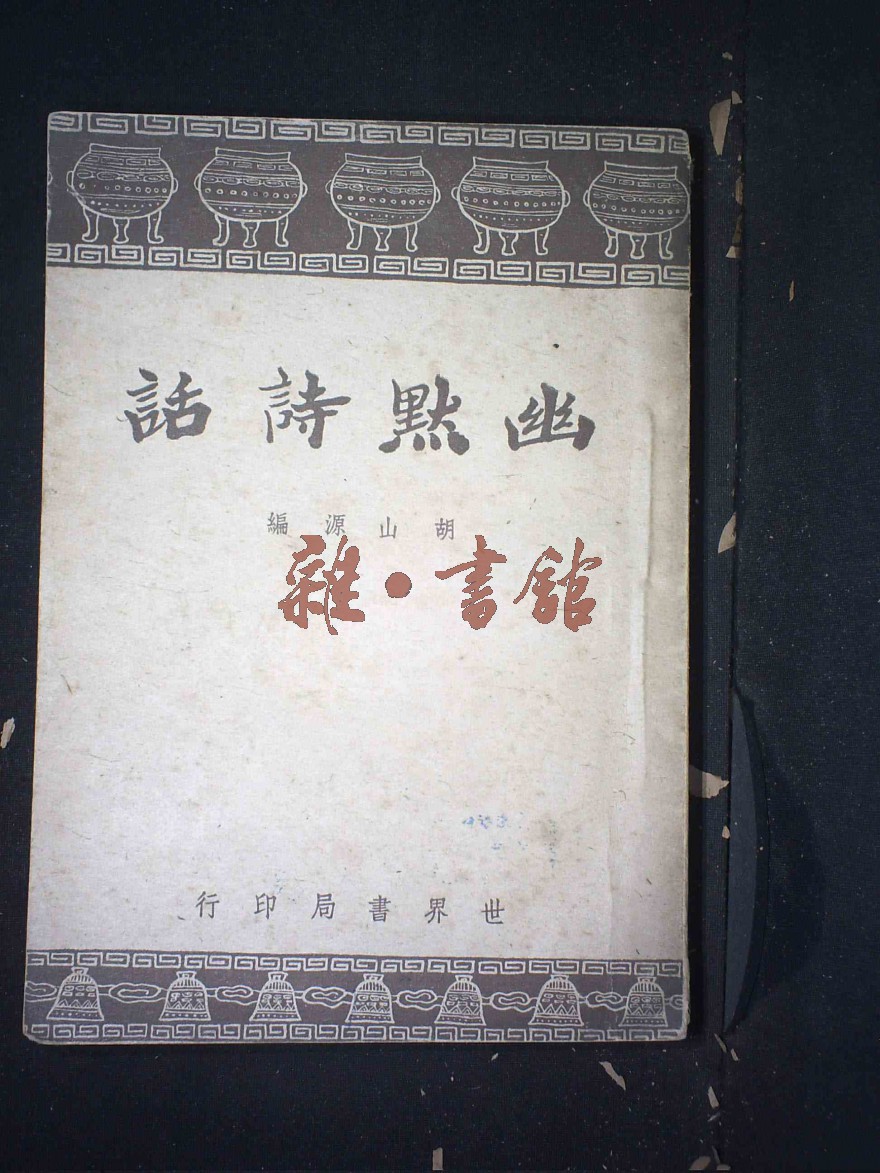 幽默詩話
胡山源編
雜·書館
世界書局印行